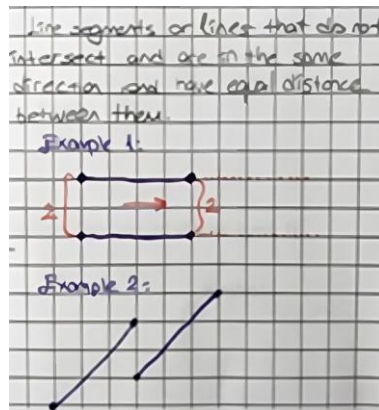 Line segments or lines that do not
intersect and are in the same
direction and have equal distance
between them.
Example 1:
2 2
Example 2: